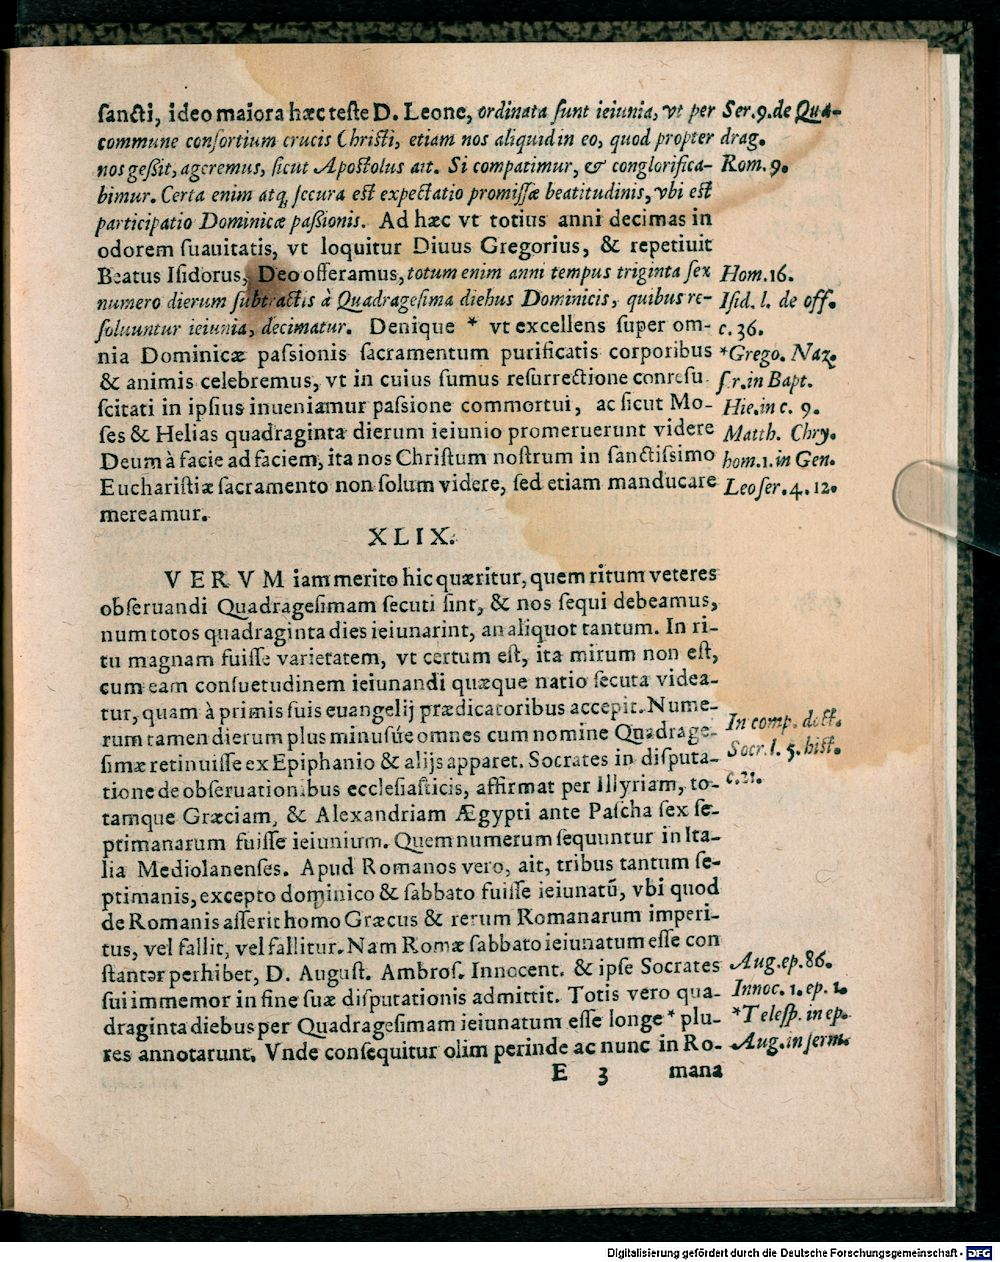 ſancti, ideo maiora hæc teſte D. Leone, ordinata ſunt ieiunia, vt per Ser. 9. de Qua-
commune conſortium crucis Chriſti, etiam nos aliquid in eo, quod propter drag.
nos geßit, ageremus, ſicut Apoſtolus ait. Si compatimur, & conglorifica- Rom. 9.
bimur. Certa enim atq, ſecura eſt expectatio promiſſæ beatitudinis, vbi eſt
participatio Dominicæ paßionis. Ad hæc vt totius anni decimas in
odorem ſuauitatis, vt loquitur Diuus Gregorius, & repetiuit
Beatus Iſidorus, Deo offeramus, totum enim anni tempus triginta ſex Hom. 16.
numero dierum ſubtractis à Quadrageſima diebus Dominicis, quibus re- Iſid. l. de off.
ſoluuntur ieiunia, decimatur. Denique * vt excellens ſuper om- c. 36.
nia Dominicæ paſsionis ſacramentum purificatis corporibus *Grego. Naz.
& animis celebremus, vt in cuius ſumus reſurrectione conreſu ſer. in Bapt.
ſcitati in ipſius inueniamur paſsione commortui, ac ſicut Mo- Hie. in c. 9.
ſes & Helias quadraginta dierum ieiunio promeruerunt videre Matth. Chry.
Deum à facie ad faciem, ita nos Chriſtum noſtrum in ſanctiſsimo hom. 1. in Gen.
Euchariſtiæ ſacramento non ſolum videre, ſed etiam manducare Leo ſer. 4. 12.
mereamur.
XLIX.
VERVM iam merito hic quæritur, quem ritum veteres
obſeruandi Quadrageſimam ſecuti ſint, & nos ſequi debeamus,
num totos quadraginta dies ieiunarint, an aliquot tantum. In ri-
tu magnam fuiſſe varietatem, vt certum eſt, ita mirum non eſt,
cum eam conſuetudinem ieiunandi quæque natio ſecuta videa-
tur, quam à primis ſuis euangelij prædicatoribus accepit. Nume-
rum tamen dierum plus minuſúe omnes cum nomine Quadrage- In comp. doct.
ſimæ retinuiſſe ex Epiphanio & alijs apparet. Socrates in diſputa- Socr. l. 5. hiſt.
tione de obſeruationibus eccleſiaſticis, affirmat per Illyriam, to- c. 21.
tamque Græciam, & Alexandriam Ægypti ante Paſcha ſex ſe-
ptimanarum fuiſſe ieiunium. Quem numerum ſequuntur in Ita-
lia Mediolanenſes. Apud Romanos vero, ait, tribus tantum ſe-
ptimanis, excepto dominico & ſabbato fuiſſe ieiunatũ, vbi quod
de Romanis aſſerit homo Græcus & rerum Romanarum imperi-
tus, vel fallit, vel fallitur. Nam Romæ ſabbato ieiunatum eſſe con
ſtanter perhibet, D. Auguſt. Ambroſ. Innocent. & ipſe Socrates Aug. ep. 86.
ſui immemor in fine ſuæ diſputationis admittit. Totis vero qua- Innoc. 1. ep. 1.
draginta diebus per Quadrageſimam ieiunatum eſſe longe * plu- *Teleſp. in ep.
res annotarunt. Vnde conſequitur olim perinde ac nunc in Ro- Aug. in ſerm.
E 3 mana
Digitalisierung gefördert durch die Deutsche Forschungsgemeinschaft - DFG